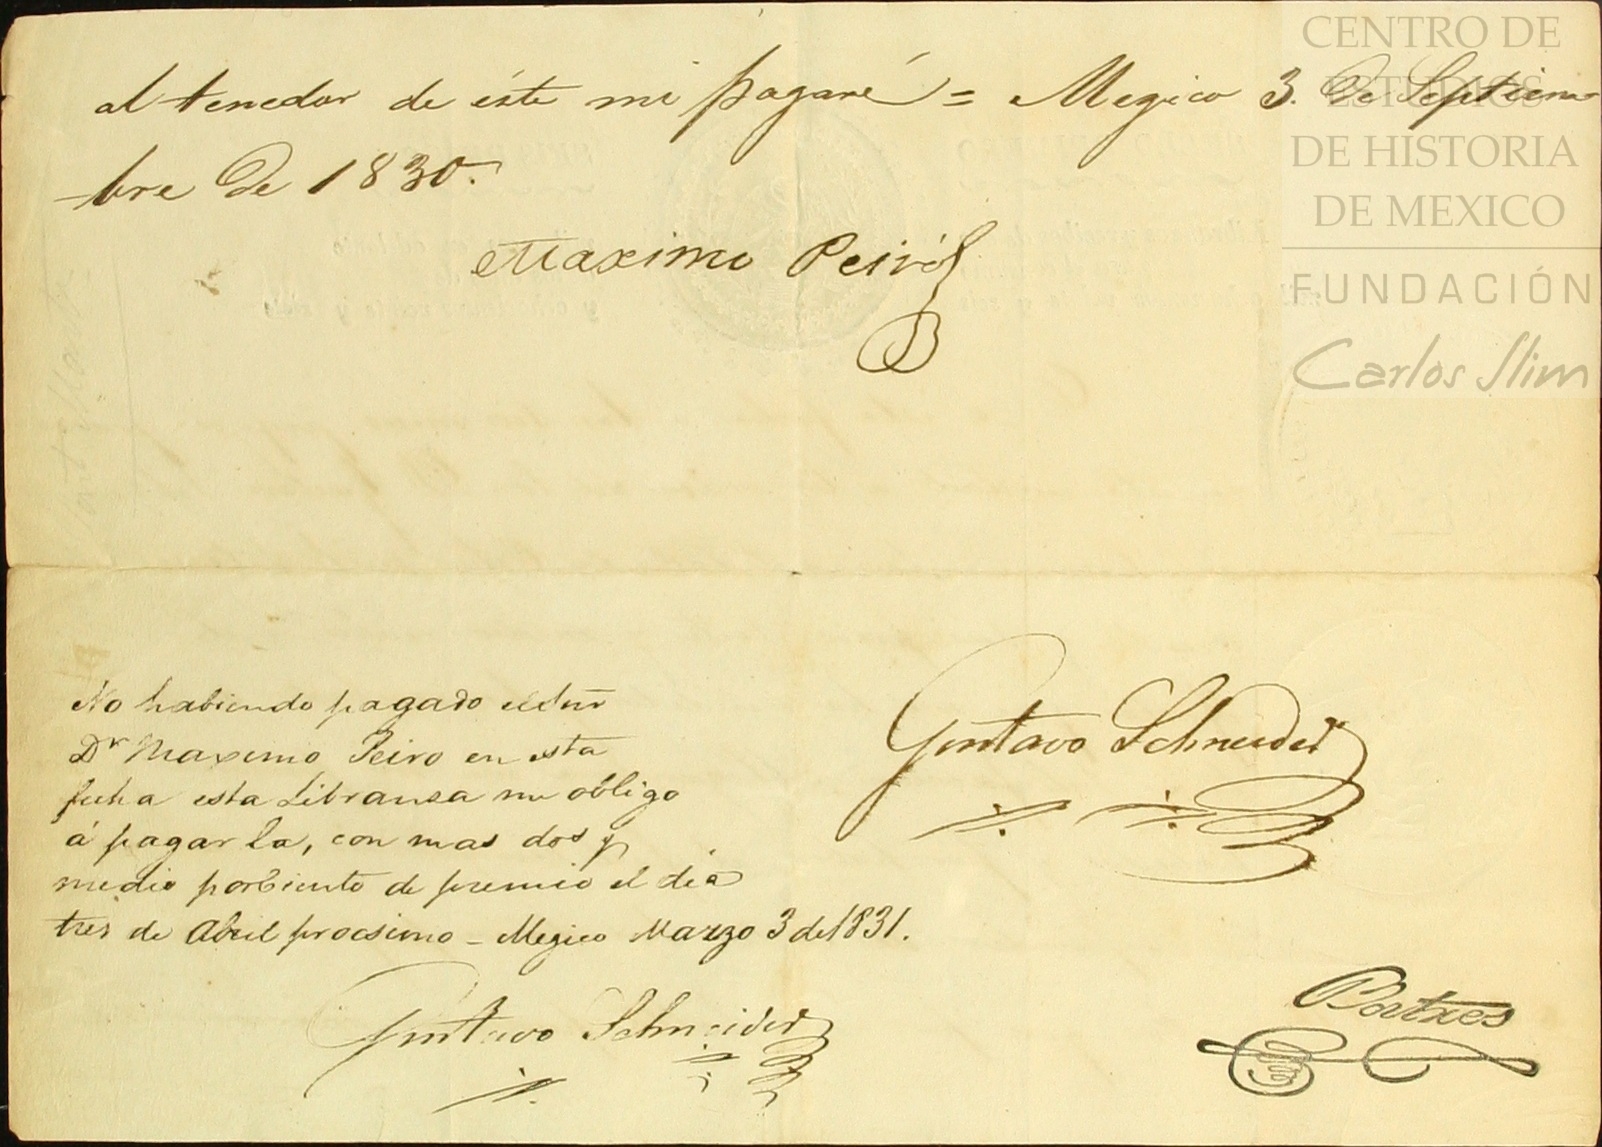 al tenedor de éste mi pagaré = Megico 3. De Septiem
bre De 1830.
Maximo Peiró
No habiendo pagado el Sr
Dn Maximo Peiro en esta
fecha esta Libransa me obligo
á pagarla, con mas dos y
medio por Ciento de premio el dia
tres de Abril procsimo - Megico Marzo 3 de 1831.
Gustavo Schneider
Gustavo Schneider
Portres
CENTRO DE
ESTUDIOS
DE HISTORIA
DE MEXICO
FUNDACIÓN
Carlos Slim